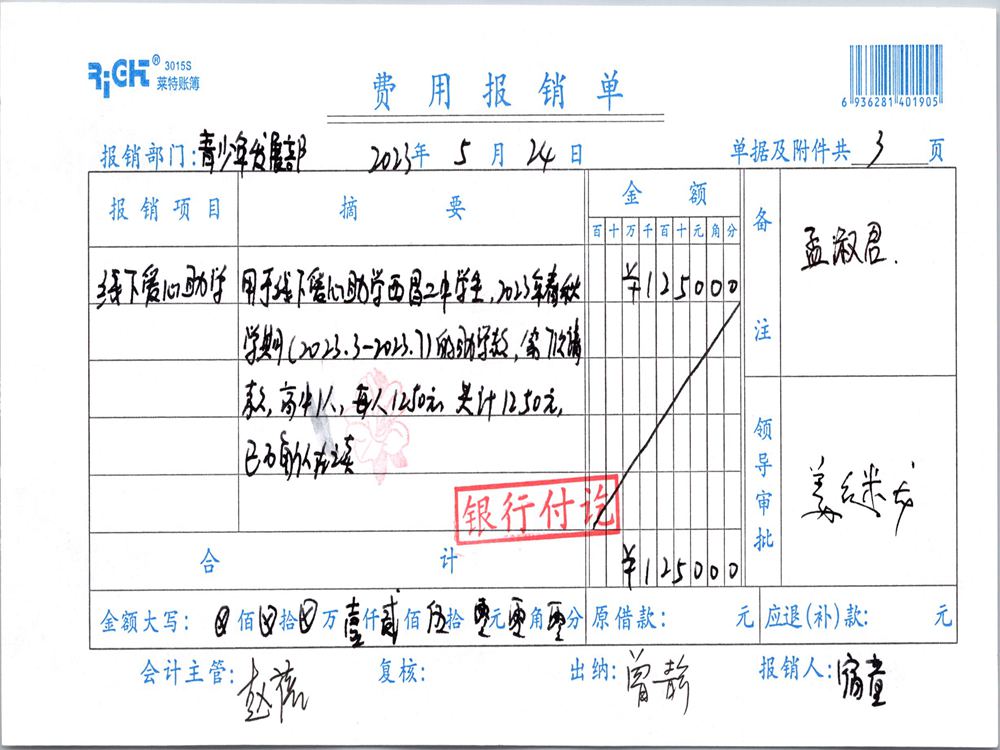 RiGHT® 3015S
莱特账簿
费用报销单
6 936281 401905
报销部门:青少年发展部 2023年 5月 24日 单据及附件共 3 页
报销项目 摘要 金额 备注
百十万千百十元角分
孟淑君.
线下爱心助学 用于线下爱心助学西昌二中学生,2023年春秋 ¥125000
学期(2023.3-2023.7)的助学款,第7次请
款,高中1人,每人1250元,共计1250元,
领导审批
银行付讫
合计 ¥125000
金额大写: 佰 拾 万 壹仟 贰佰 伍拾 零元 零角 零分 原借款: 元 应退(补)款: 元
会计主管: 复核: 出纳:曾静 报销人: